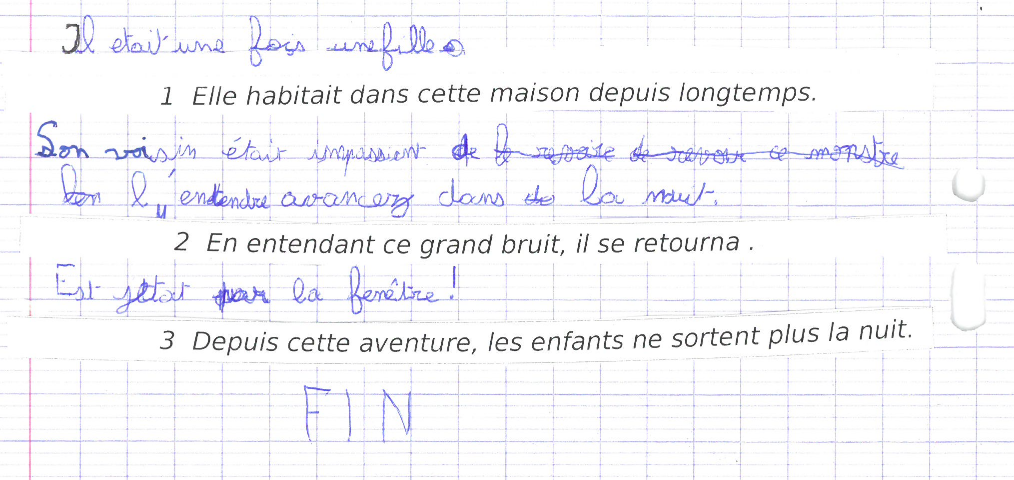 Il etait une fois une fille.
1 Elle habitait dans cette maison depuis longtemps.
Son voisin était impassient de le revoire de revoir ce monstre
l'entendre avancerz dans de la nuit.
2 En entendant ce grand bruit, il se retourna .
Est jetat par la fenêtre !
3 Depuis cette aventure, les enfants ne sortent plus la nuit.
FIN